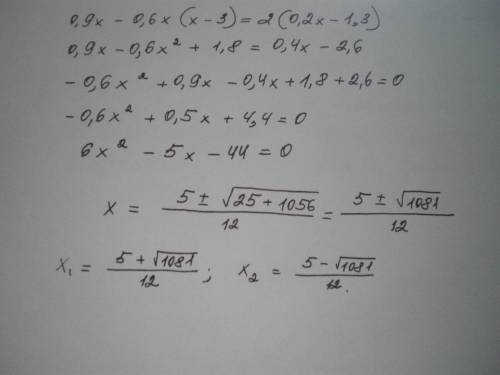 0,9x - 0,6x (x - 3) = 2 (0,2x - 1,3)
0,9x - 0,6x² + 1,8 = 0,4x - 2,6
- 0,6x² + 0,9x - 0,4x + 1,8 + 2,6 = 0
- 0,6x² + 0,5x + 4,4 = 0
6x² - 5x - 44 = 0
x = (5 ± √(25 + 1056))/12 = (5 ± √1081)/12
x₁ = (5 + √1081)/12 ; x₂ = (5 - √1081)/12.